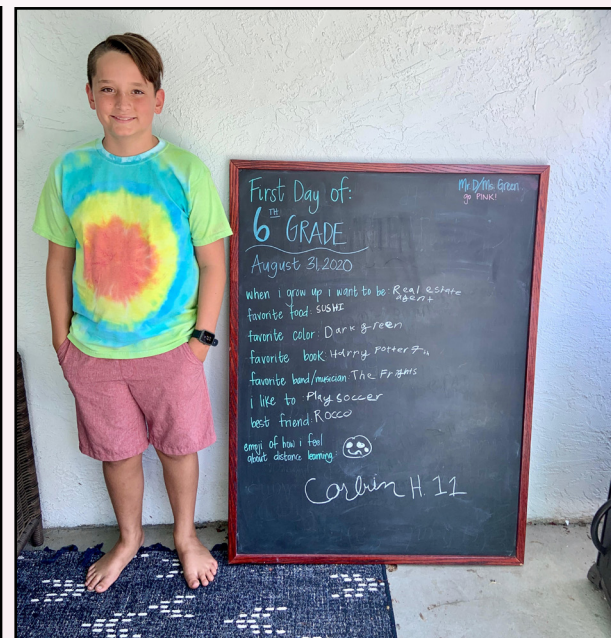 First Day of:
6TH GRADE
August 31, 2020
Mr. D/Ms. Green
go PINK!
when i grow up i want to be: Real estate
agent
favorite food: SUSHI
favorite color: Dark green
favorite book: Harry Potter
favorite band/musician The Frights
i like to: Play soccer
best friend: Rocco
emoji of how i feel
about distance learning:
Corbin H. 11